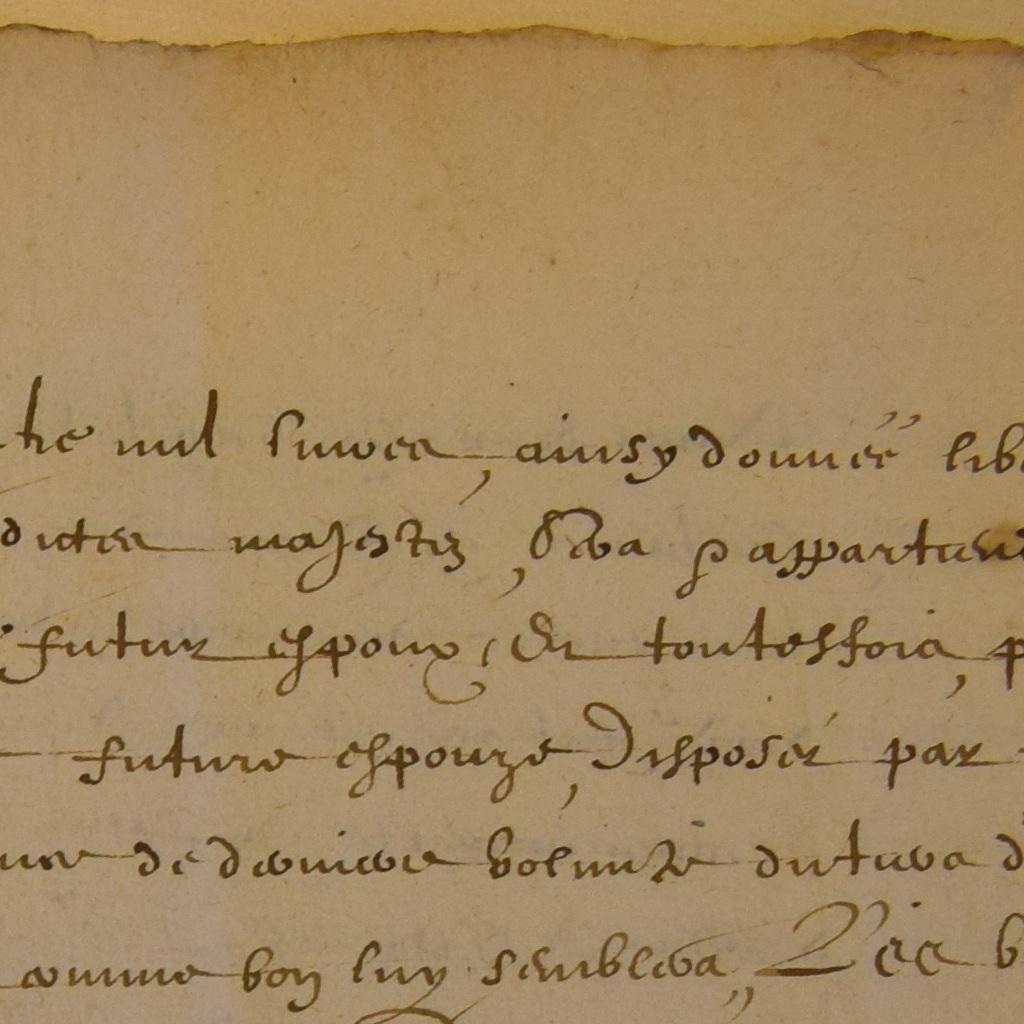 mil livres, ainsy donnéé
dictes majestez, Sera & appartien
futur espoux, Et toutesfois, p
future espouze, Disposér par
de derniere volunté du tiers d
comme bon luy semblera, Les b